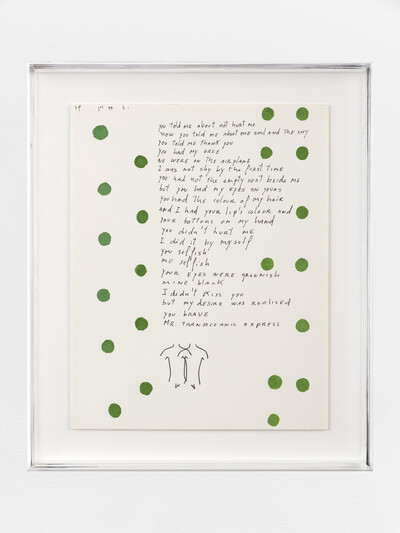 you told me about not hurt me
now you told me about one soul and the sky
you told me thank you
you had my gaze
we were on the airplane
I was not shy by the first time
you had not the empty seat beside me
but you had my eyes on yours
you had the colour of my hair
and I had your lip's colour and
your bottons on my hand
you didn't hurt me
I did it by myself
you selfish
me selfish
your eyes were greenish
mine black
I didn't kiss you
but my desire was realized
you brave
MR. TRANSOCEANIC EXPRESS